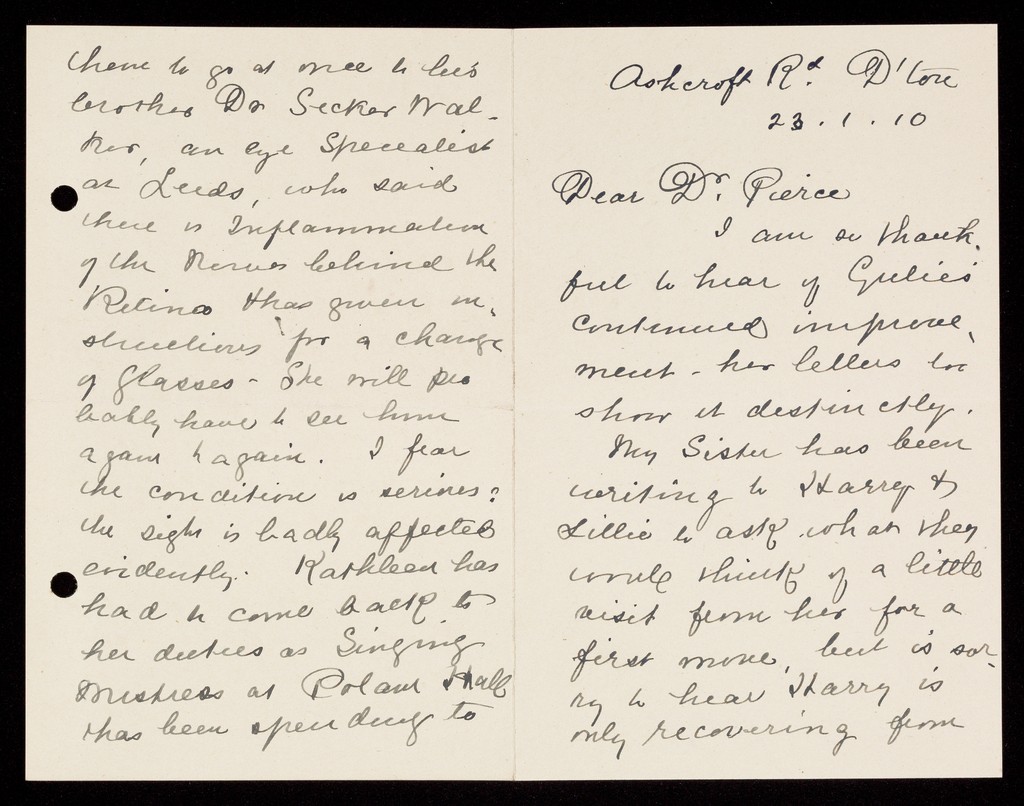 Ashcroft Rd. D'ton
23.1.10
Dear Dr. Pierce
I am so thank-
ful to hear of Gulie's
continued improve-
ment - her letters too
show it destinctly.
My Sister has been
writing to Harry &
Lillie to ask what they
would think of a little
visit from her for a
first move, but is sor-
ry to hear Harry is
only recovering from
them to go at once to his
brother Dr Secker Wal-
ker, an eye Specialist
at Leeds, who said
there is Inflammation
of the Nerves behind the
Retina & has given in-
structions for a change
of Glasses - She will pro
bably have to see him
again & again. I fear
the condition is serious:
the sight is badly affected
evidently. Kathleen has
had to come back to
her duties as Singing
Mistress at Polam Hall
& has been spending to